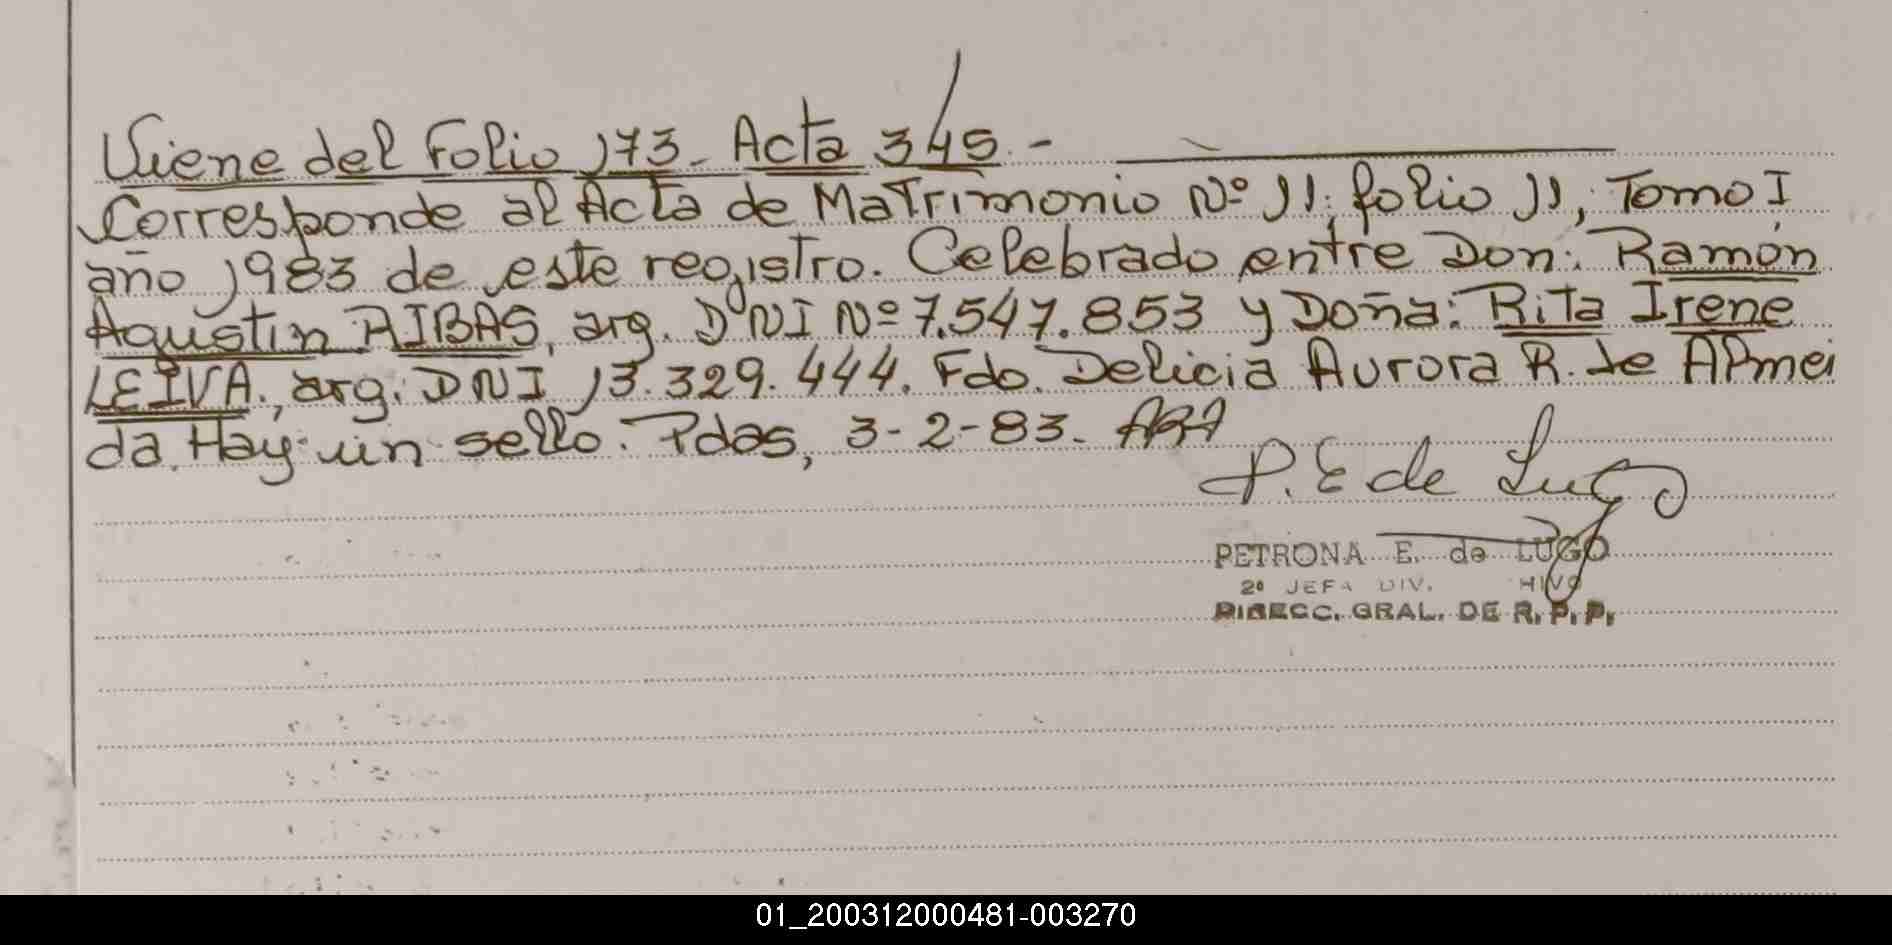 Viene del Folio 173. Acta 345.-
Corresponde al Acta de Matrimonio Nº 11, folio 11, Tomo I
año 1983 de este registro. Celebrado entre Don: Ramón
Agustin RIBAS, arg. DNI Nº 7.547.853 y Doña: Rita Irene
LEIVA., arg. DNI 13.329.444. Fdo. Delicia Aurora R. de Almei
da. Hay un sello. Pdas, 3-2-83.
P. E de Lugo
PETRONA E. de LUGO
2º JEFA DIV. HIVO
DIRECC. GRAL. DE R. P. P.
01_200312000481-003270